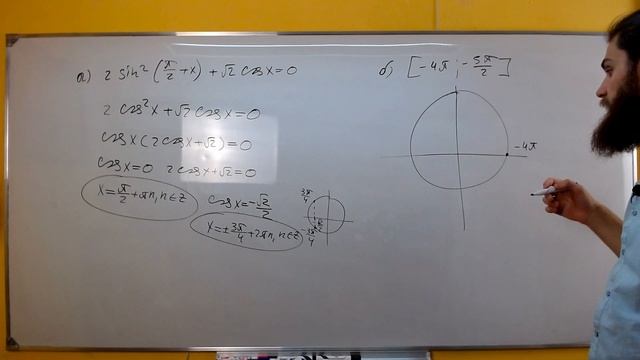 а) 2 sin² (π/2 + x) + √2 cos x = 0
2 cos² x + √2 cos x = 0
cos x (2 cos x + √2) = 0
cos x = 0 2 cos x + √2 = 0
x = π/2 + πn, n ∈ Z
cos x = -√2/2
x = ± 3π/4 + 2πn, n ∈ Z
3π/4
-3π/4
б) [-4π ; -5π/2]
-4π